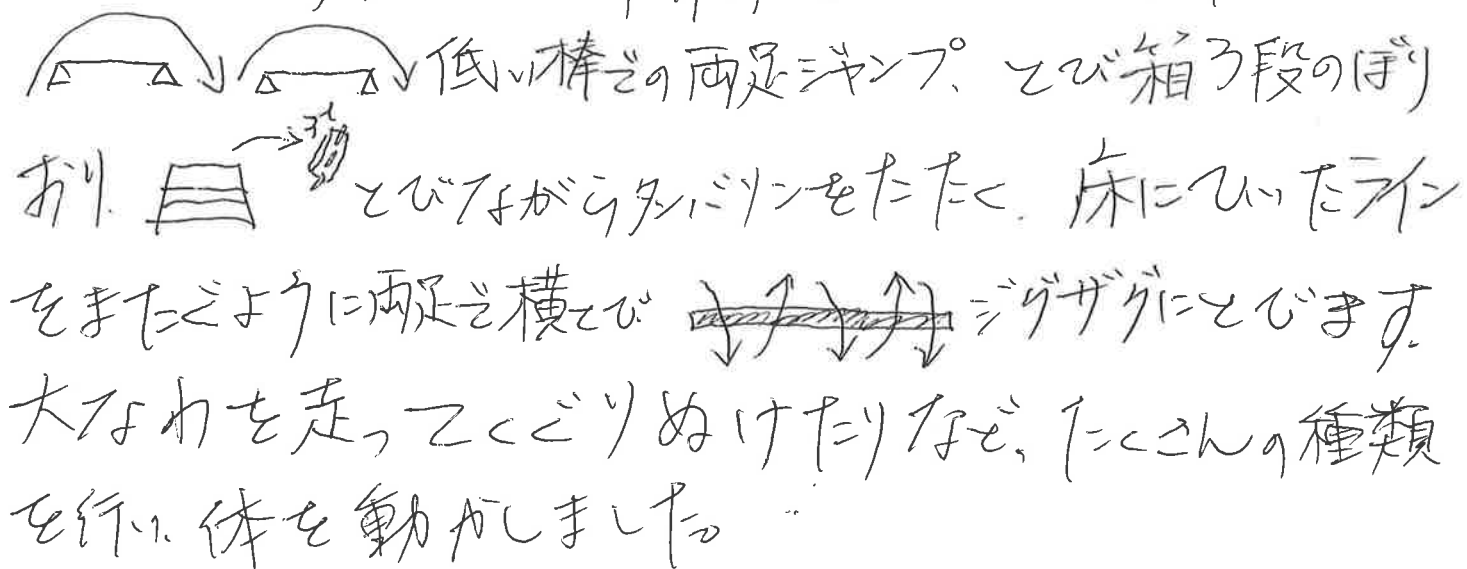 低い棒での両足ジャンプ、とび箱3段のぼり
おり、とびながらタンバリンをたたく、床にひいたライン
をまたぐように両足で横とび ジグザグにとびます。
大なわを走ってくぐりぬけたりなど、たくさんの種類
を行い、体を動かしました。